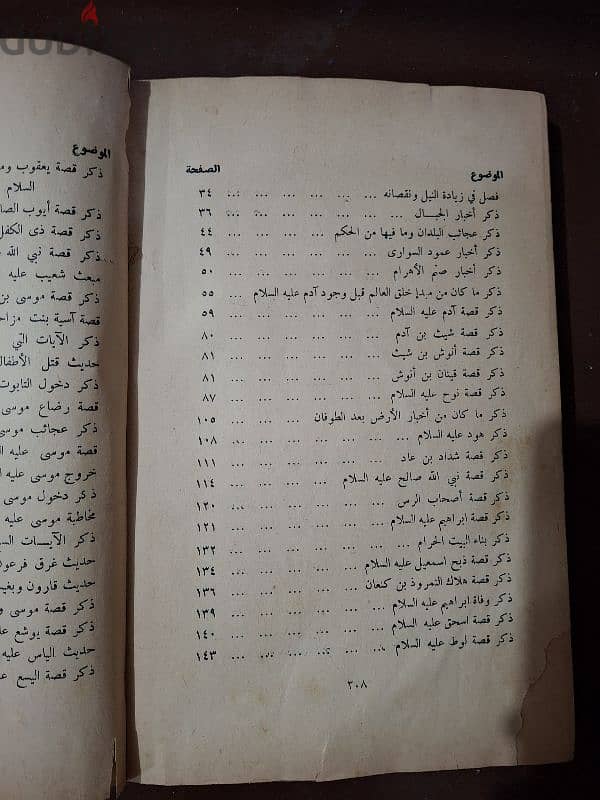 الموضوع الصفحة
فصل في زيادة النيل ونقصانه ... ... ... ... ... ٣٤
ذكر أخبار الجبــال ... ... ... ... ... ... ٣٦
ذكر عجائب البلدان وما فيها من الحكم ... ... ... ... ٤٤
ذكر أخبار عمود السوارى ... ... ... ... ... ٤٩
ذكر أخبار صنم الأهرام ... ... ... ... ... ٥٠
ذكر ما كان من مبدإ خلق العالم قبل وجود آدم عليه السلام ... ٥٥
ذكر قصة آدم عليه السلام ... ... ... ... ... ٥٩
ذكر قصة شيث بن آدم ... ... ... ... ... ٨٠
ذكر قصة أنوش بن شيث ... ... ... ... ... ٨١
ذكر قصة قينان بن أنوش ... ... ... ... ... ٨١
ذكر قصة نوح عليه السلام ... ... ... ... ... ٨٧
ذكر ما كان من أخبار الأرض بعد الطوفان ... ... ... ١٠٥
ذكر هود عليه السلام ... ... ... ... ... ... ١٠٨
ذكر قصة شداد بن عاد ... ... ... ... ... ١١١
ذكر قصة نبي الله صالح عليه السلام ... ... ... ... ١١٤
ذكر قصة أصحاب الرس ... ... ... ... ... ١٢٠
ذكر قصة ابراهيم عليه السلام ... ... ... ... ... ١٢١
ذكر بناء البيت الحرام ... ... ... ... ... ... ١٣٢
ذكر قصة ذبح اسمعيل عليه السلام ... ... ... ... ١٣٤
ذكر قصة هلاك النمروذ بن كنعان ... ... ... ... ١٣٦
ذكر وفاة ابراهيم عليه السلام ... ... ... ... ... ١٣٩
ذكر قصة اسحق عليه السلام ... ... ... ... ... ١٤٠
ذكر قصة لوط عليه السلام ... ... ... ... ... ١٤٣
٣٠٨
الموضوع
ذكر قصة يعقوب
السلام
ذكر قصة أيوب
ذكر قصة ذى الكفل
ذكر قصة نبي الله
مبعث شعيب عليه
ذكر قصة موسى بن
قصة آسية بنت
ذكر الآيات التي
حديث قتل الأطفال
ذكر دخول التابوت
قصة رضاع موسى
ذكر عجائب موسى
قصة موسى عليه
خروج موسى عليه
ذكر دخول موسى
مخاطبة موسى عليه
ذكر الآيــات
حديث غرق فرعون
حديث قارون
ذكر قصة موسى
ذكر قصة يوشع
حديث الياس عليه
ذكر قصة اليسع